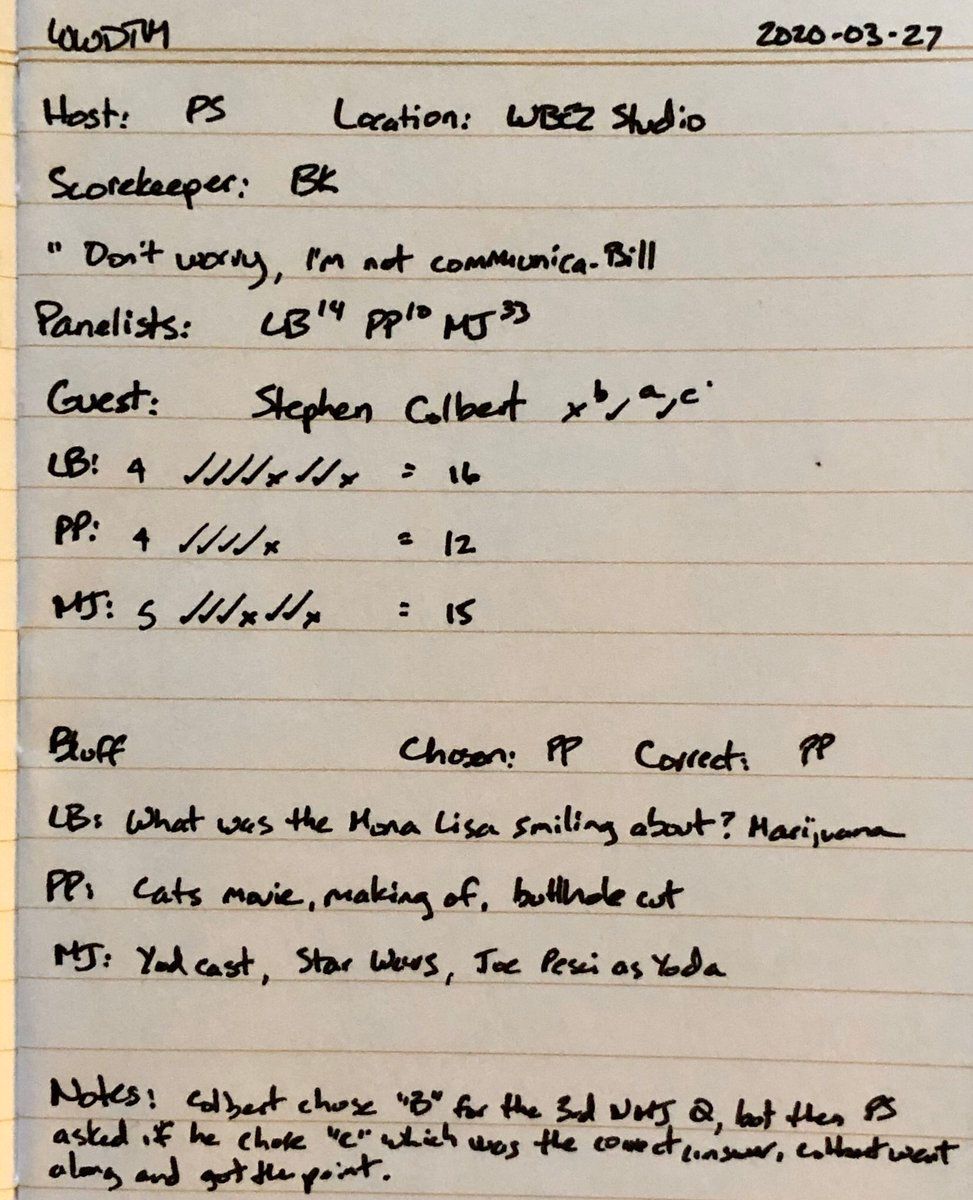 WWDTM 2020-03-27
Host: PS Location: WBEZ Studio
Scorekeeper: BK
" Don't worry, I'm not communica-Bill
Panelists: LB¹⁴ PP¹⁰ MJ³³
Guest: Stephen Colbert x b, ✓ a, ✓ c
LB: 4 ✓✓✓✓x✓✓x = 16
PP: 4 ✓✓✓✓x = 12
MJ: 5 ✓✓✓x✓✓x = 15
Bluff Chosen: PP Correct: PP
LB: What was the Mona Lisa smiling about? Marijuana
PP: Cats movie, making of, butthole cut
MJ: Yodcast, Star Wars, Joe Pesci as Yoda
Notes: Colbert chose "B" for the 3rd NMJ Q, but then PS
asked if he chose "C" which was the correct answer, Colbert went
along and got the point.